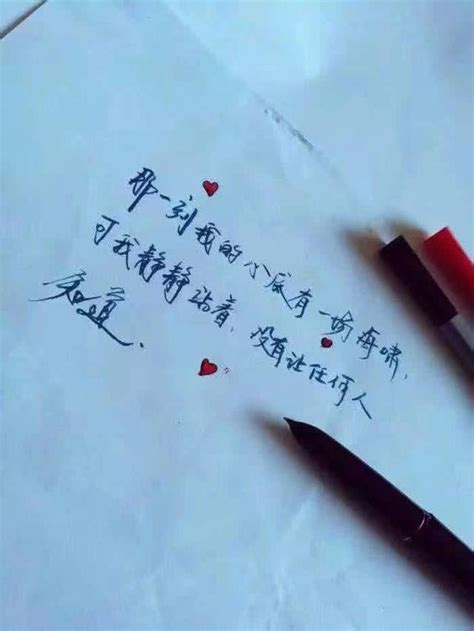 那一刻我的心底有一场海啸,
可我静静站着,没有让任何人
知道.